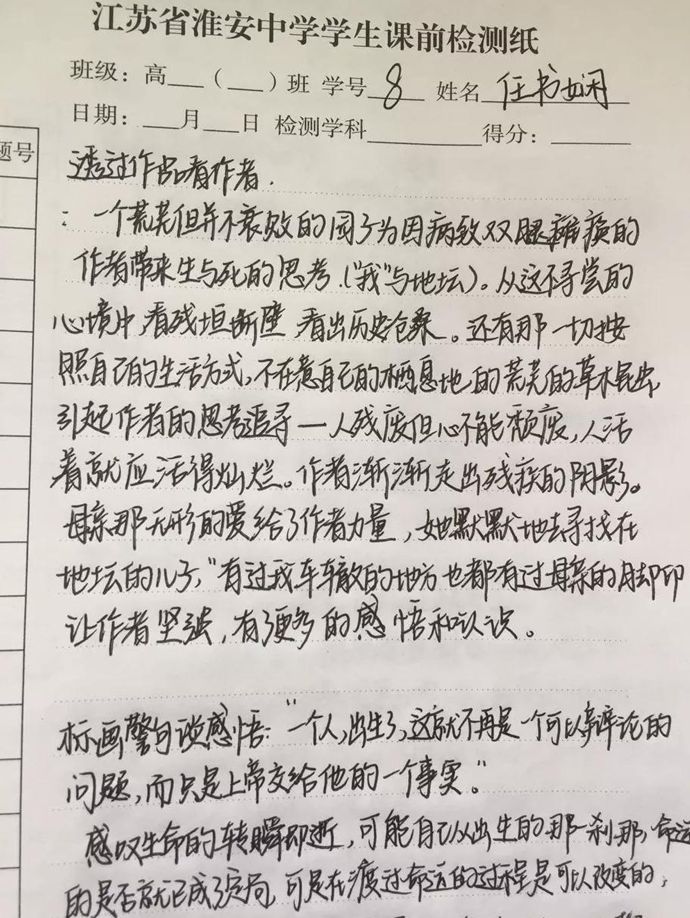 江苏省淮安中学学生课前检测纸
班级：高___（___）班 学号 8 姓名 任书娴
日期：___月___日 检测学科________得分：______
题号
透过作品看作者.
：一个荒芜但并不衰败的园子为因病致双腿瘫痪的
作者带来生与死的思考.（"我"与地坛）。从这不寻常的
心境中,看残垣断壁,看出历史沧桑。还有那一切按
照自己的生活方式,不在意自己的栖息地的荒芜的草木昆虫,
引起作者的思考追寻—人残废但心不能颓废,人活
着就应活得灿烂。作者渐渐走出残疾的阴影。
母亲那无形的爱给了作者力量,她默默地去寻找在
地坛的儿子,"有过我车辙的地方也都有过母亲的脚印
让作者坚强,有了更多的感悟和认识。
标画警句谈感悟:"一个人,出生了,这就不再是一个可以辩论的
问题,而只是上帝交给他的一个事实。"
感叹生命的转瞬即逝,可能自己从出生的那一刹那,命运
的是否就已成了定局,可是在渡过命运的过程是可以改变的,